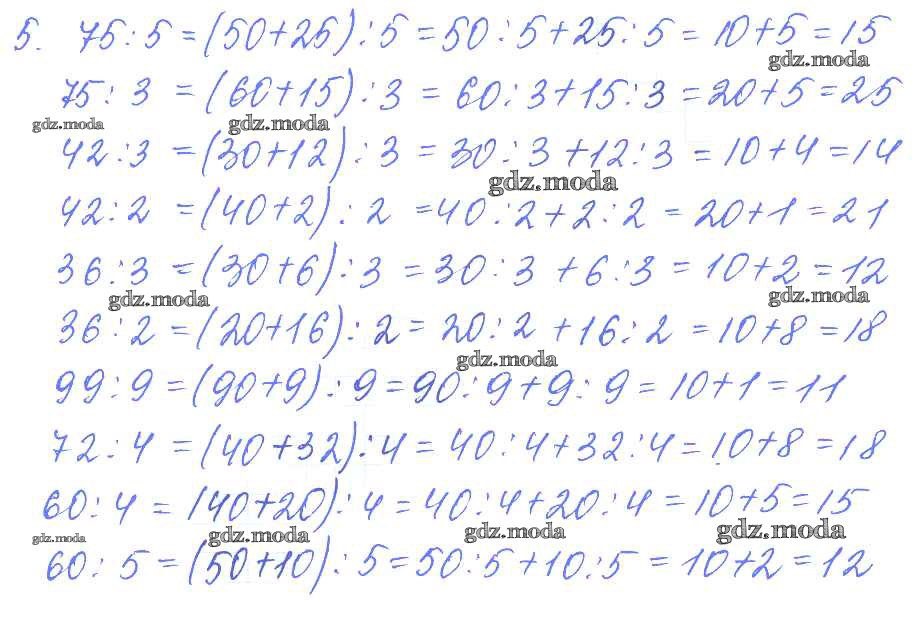 5. 75 : 5 = (50+25) : 5 = 50 : 5 + 25 : 5 = 10 + 5 = 15
gdz.moda
75 : 3 = (60+15) : 3 = 60 : 3 + 15 : 3 = 20 + 5 = 25
gdz.moda gdz.moda
42 : 3 = (30+12) : 3 = 30 : 3 + 12 : 3 = 10 + 4 = 14
gdz.moda
42 : 2 = (40+2) : 2 = 40 : 2 + 2 : 2 = 20 + 1 = 21
36 : 3 = (30+6) : 3 = 30 : 3 + 6 : 3 = 10 + 2 = 12
gdz.moda gdz.moda
36 : 2 = (20+16) : 2 = 20 : 2 + 16 : 2 = 10 + 8 = 18
gdz.moda
99 : 9 = (90+9) : 9 = 90 : 9 + 9 : 9 = 10 + 1 = 11
72 : 4 = (40+32) : 4 = 40 : 4 + 32 : 4 = 10 + 8 = 18
60 : 4 = (40+20) : 4 = 40 : 4 + 20 : 4 = 10 + 5 = 15
gdz.moda gdz.moda gdz.moda gdz.moda
60 : 5 = (50+10) : 5 = 50 : 5 + 10 : 5 = 10 + 2 = 12